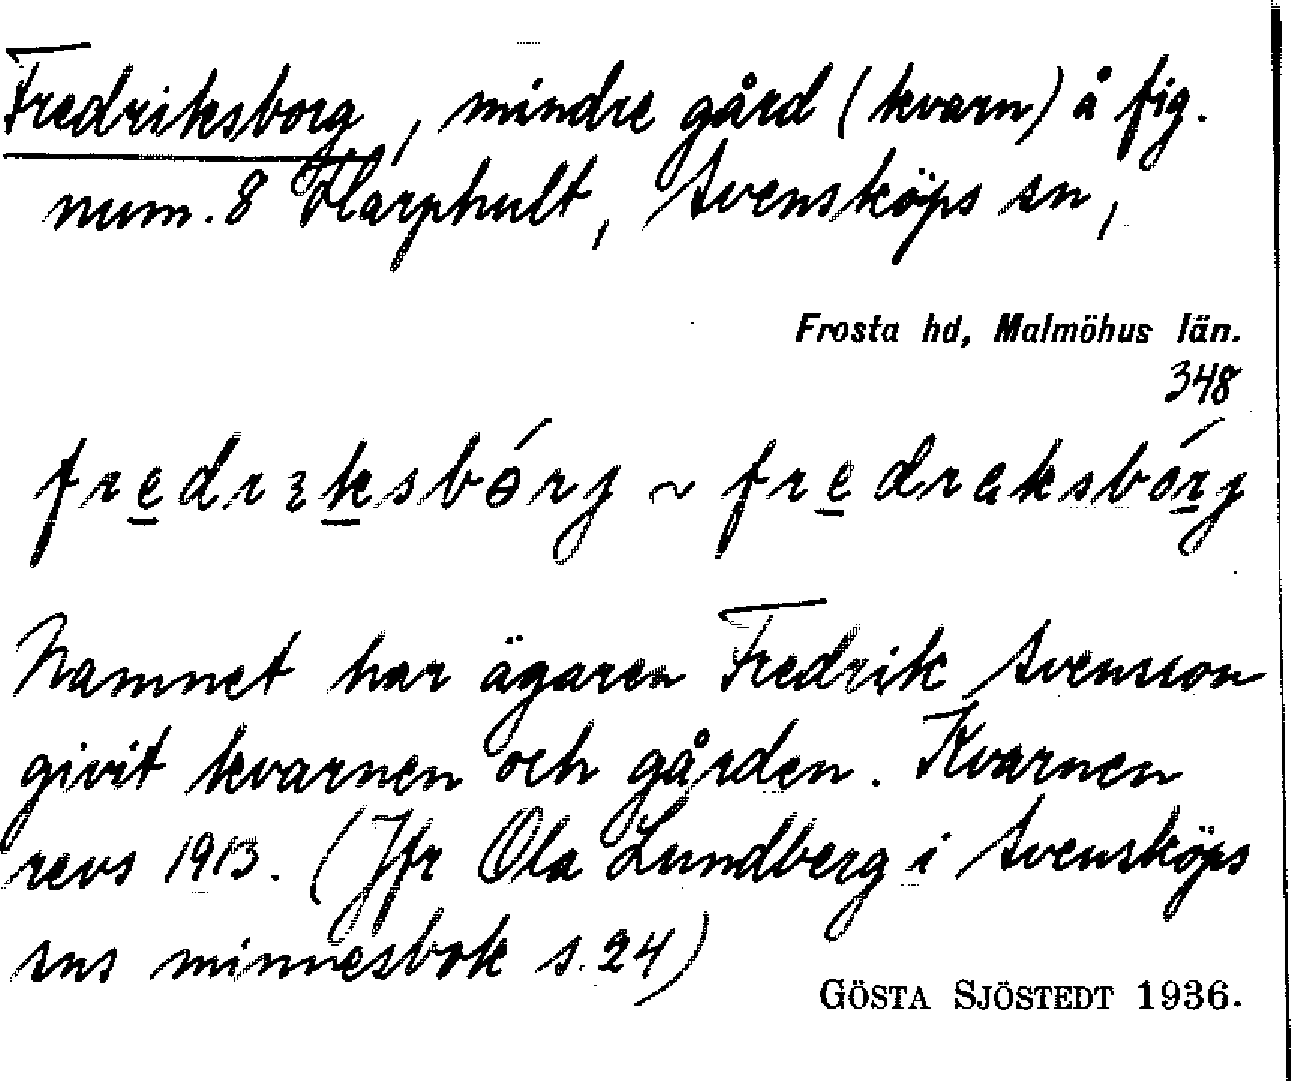 Fredriksborg, mindre gård (kvarn) å fig.
num. 8 Harphult, Svensköps sn,
Frosta hd, Malmöhus län.
348
fredrɜksbórj ~ fredrɑksbórj
Namnet har ägaren Fredrik Svensson
givit kvarnen och gården. Kvarnen
revs 1913. (Jfr Ola Lundberg i Svensköps
sns minnesbok s. 24)
GÖSTA SJÖSTEDT 1936.